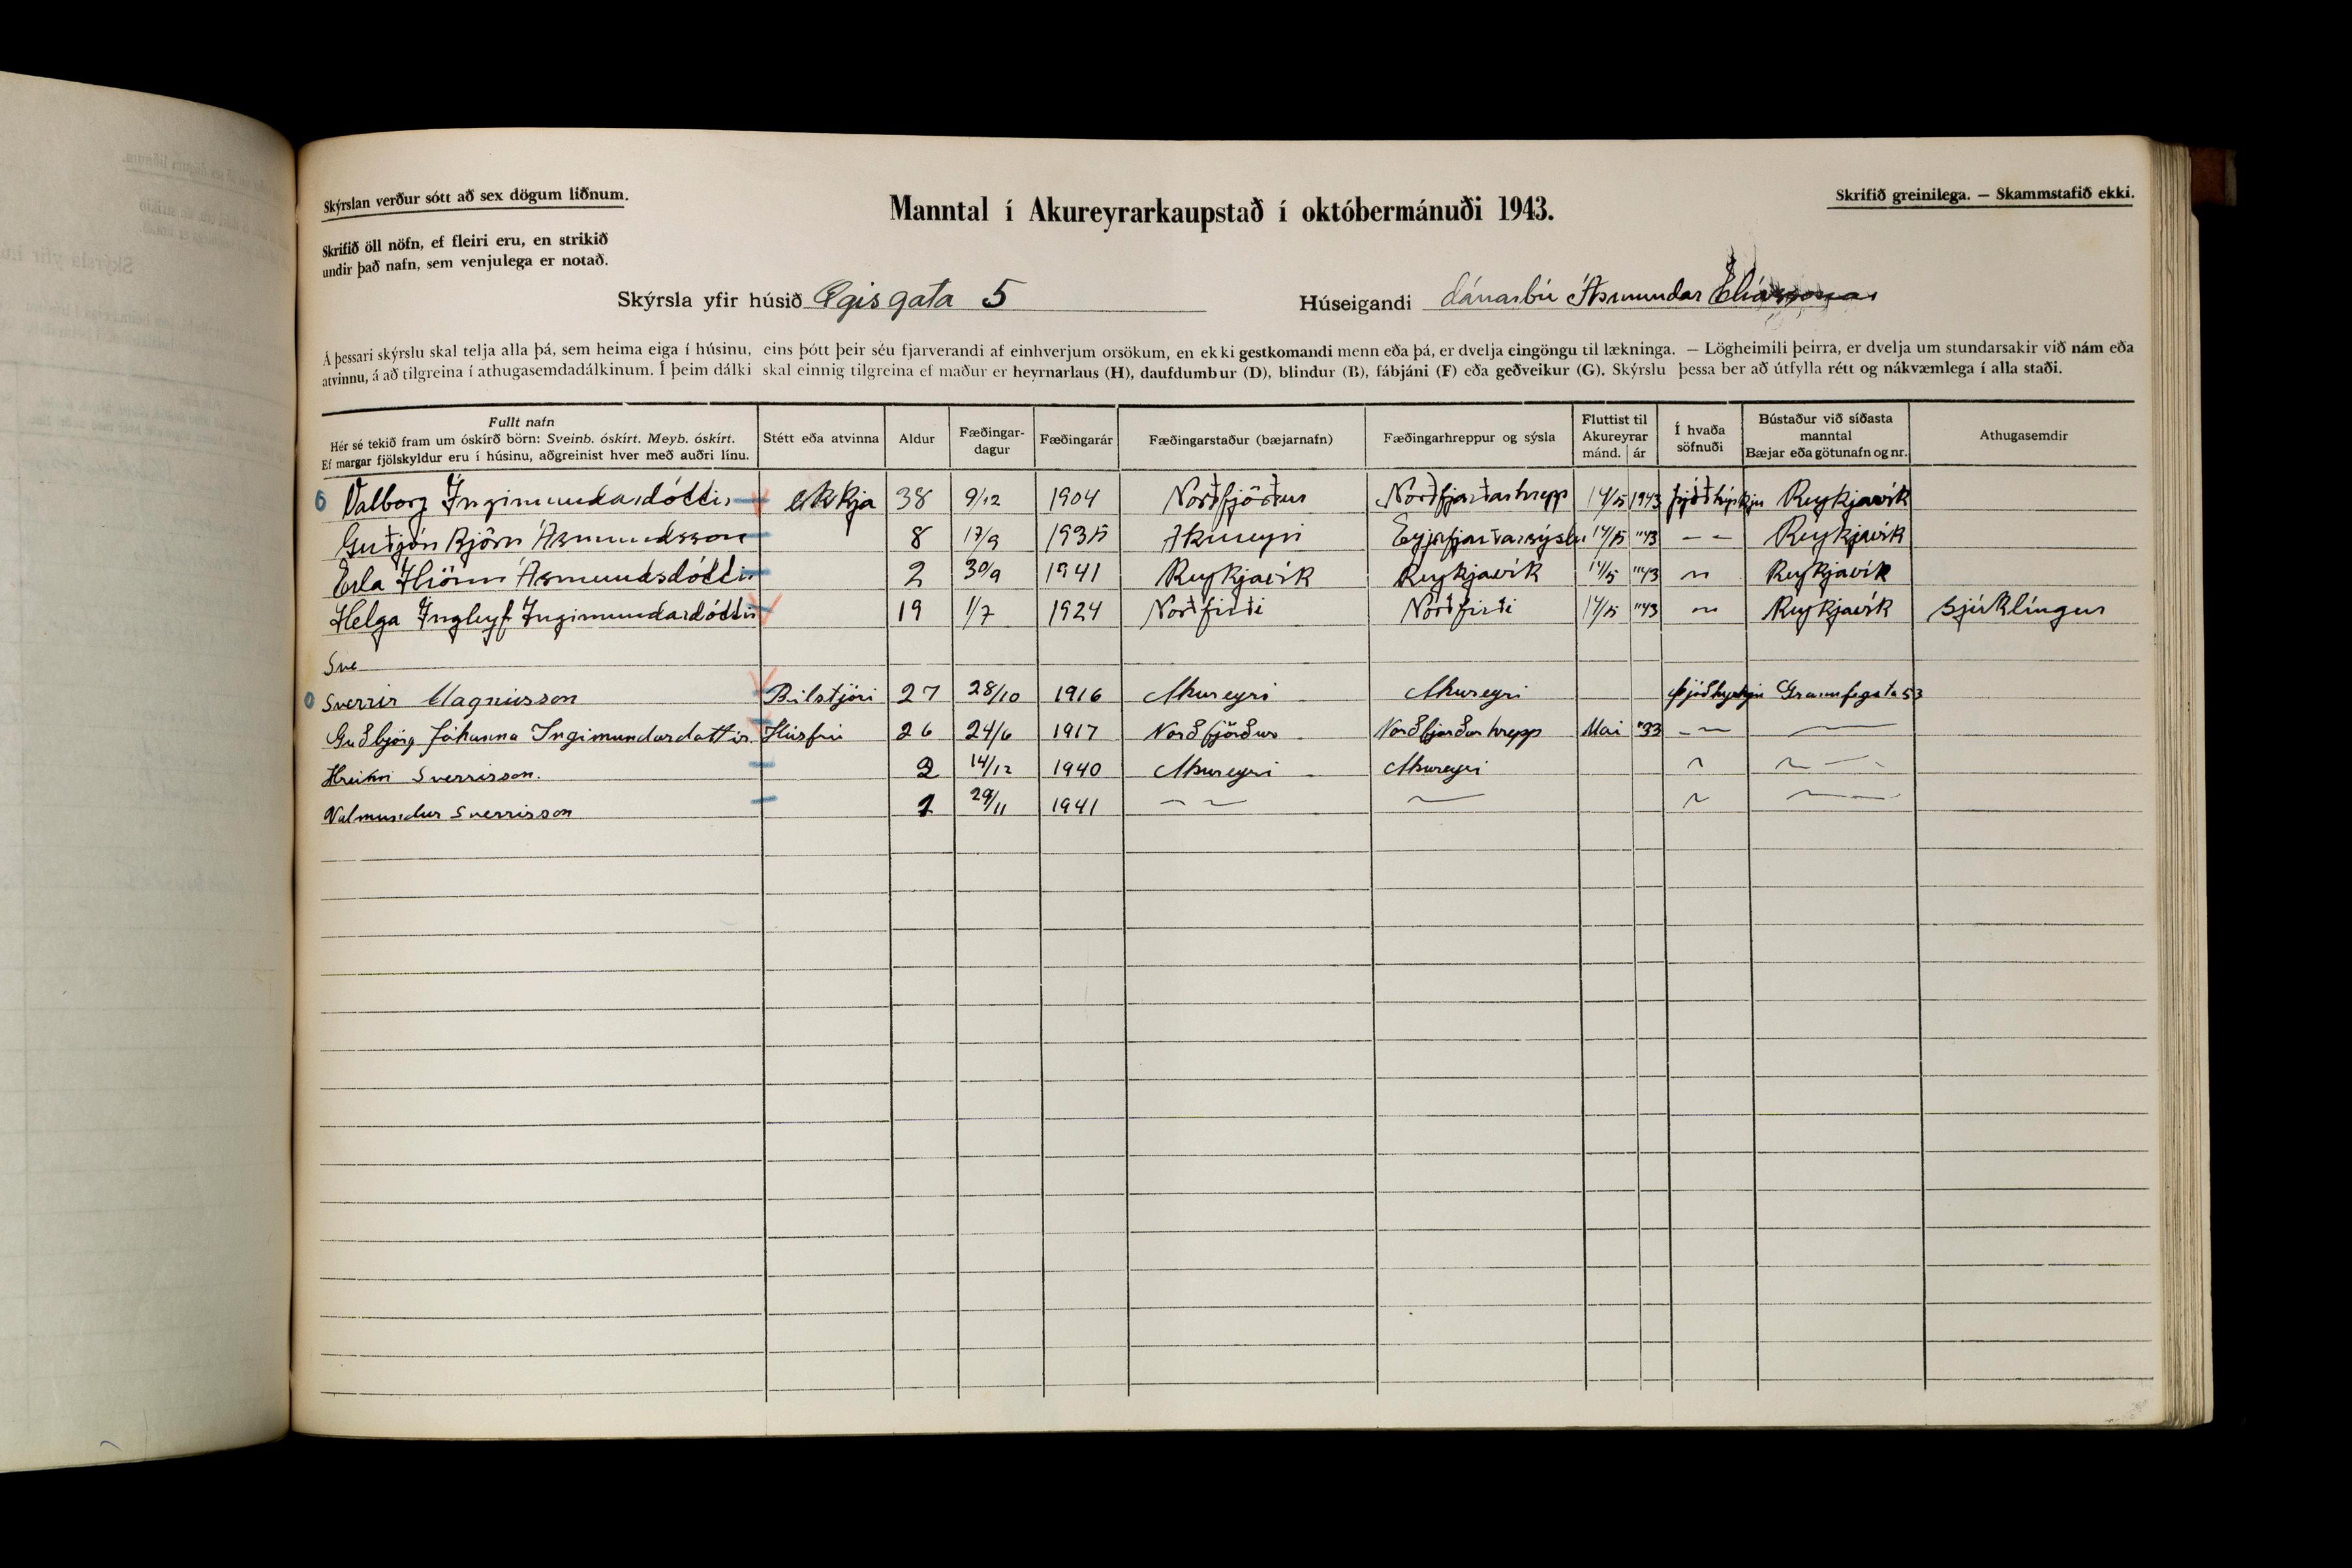 Skýrslan verður sótt að sex dögum liðnum.
Manntal í Akureyrarkaupstað í októbermánuði 1943.
Skrifið greinilega. — Skammstafið ekki.
Skrifið öll nöfn, ef fleiri eru, en strikið
undir það nafn, sem venjulega er notað.
Skýrsla yfir húsið Ægisgata 5
Húseigandi dánarbú Ásmundar Elíassonar
Á þessari skýrslu skal telja alla þá, sem heima eiga í húsinu, eins þótt þeir séu fjarverandi af einhverjum orsökum, en ekki gestkomandi menn eða þá, er dvelja eingöngu til lækninga. — Lögheimili þeirra, er dvelja um stundarsakir við nám eða
atvinnu, á að tilgreina í athugasemdadálkinum. Í þeim dálki skal einnig tilgreina ef maður er heyrnarlaus (H), daufdumbur (D), blindur (B), fábjáni (F) eða geðveikur (G). Skýrslu þessa ber að útfylla rétt og nákvæmlega í alla staði.
Fullt nafn
Hér sé tekið fram um óskírð börn: Sveinb. óskírt. Meyb. óskírt.
Ef margar fjölskyldur eru í húsinu, aðgreinist hver með auðri línu.
Stétt eða atvinna
Aldur
Fæðingar-
dagur
Fæðingarár
Fæðingarstaður (bæjarnafn)
Fæðingarhreppur og sýsla
Fluttist til
Akureyrar
mánd. ár
Í hvaða
söfnuði
Bústaður við síðasta
manntal
Bæjar eða götunafn og nr.
Athugasemdir
Valborg Ingimundardóttir ekkja 38 9/12 1904 Norðfjörður Norðfjarðarhrepp 14/5 1943 þjóðkirkju Reykjavík
Guðjón Björn Ásmundsson 8 17/9 1935 Akureyri Eyjafjarðarsýslu 14/5 "43 – – Reykjavík
Erla Hrönn Ásmundsdóttir 2 30/9 1941 Reykjavík Reykjavík 14/5 "43 " Reykjavík
Helga Ingleyf Ingimundardóttir 19 1/7 1924 Norðfirði Norðfirði 14/5 "43 " Reykjavík sjúklingur
Sve
Sverrir Magnússon Bílstjóri 27 28/10 1916 Akureyri Akureyri Þjóðkyrkju Gránufegata 53
Guðbjörg Jóhanna Ingimundardóttir Húsfrú 26 24/6 1917 Norðfjörður Norðfjarðarhrepp Mai "33 – ~ ~
Hreinn Sverrisson. 2 14/12 1940 Akureyri Akureyri ~ ~ – -
Valmundur Sverrisson 1 29/11 1941 ~ ~ ~ ~ ~